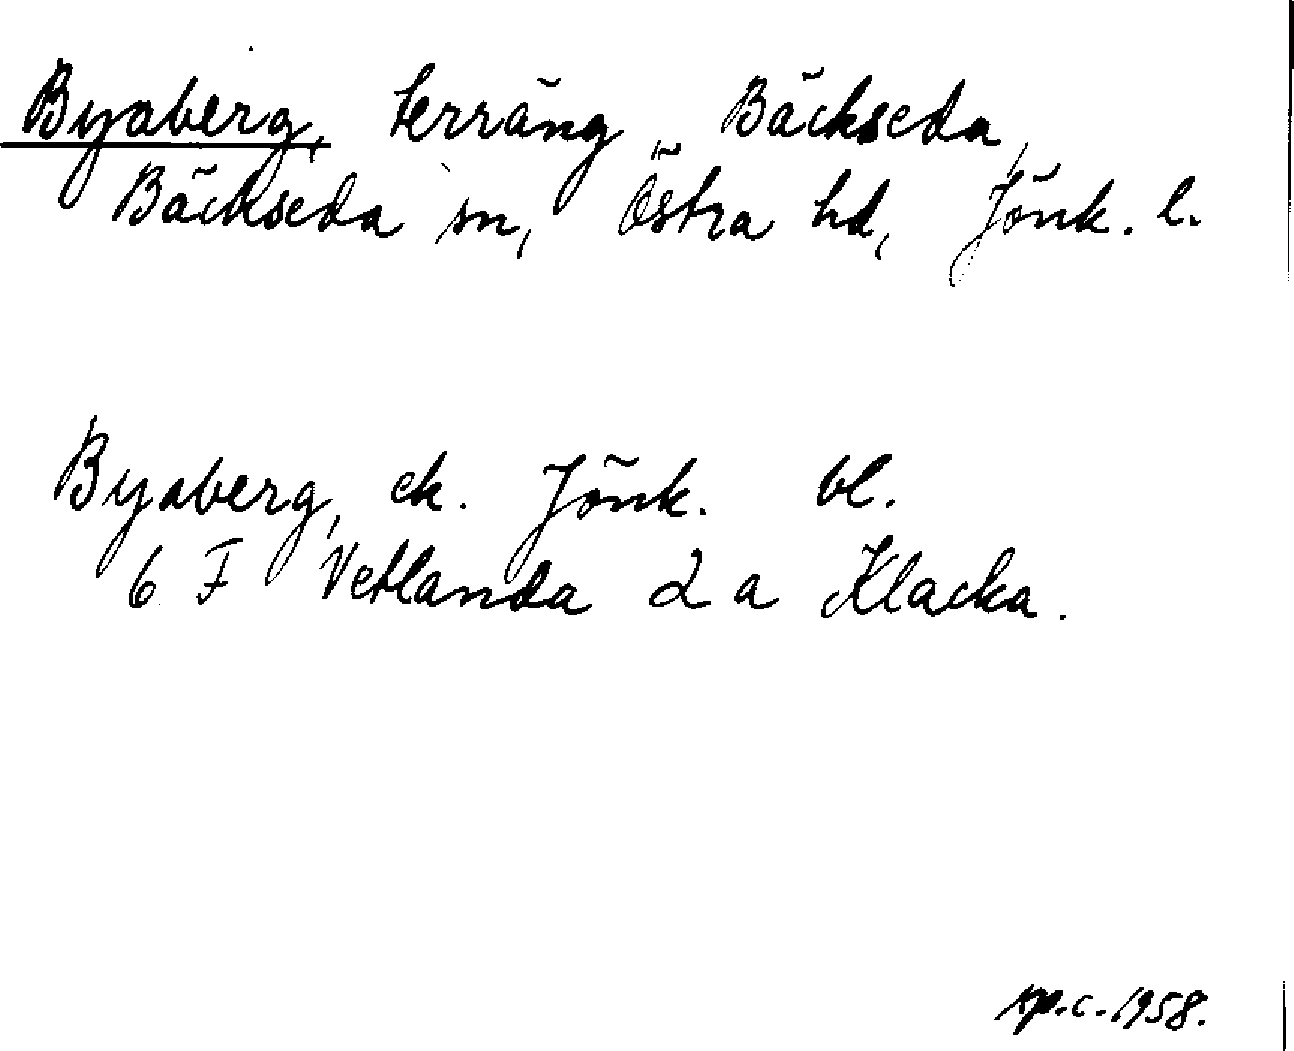 Byaberg, terräng, Bäckseda,
Bäckseda sn, Östra hd, Jönk. l.
Byaberg, ek. Jönk. bl.
6 F Vetlanda 2 a Klacka.
1958.